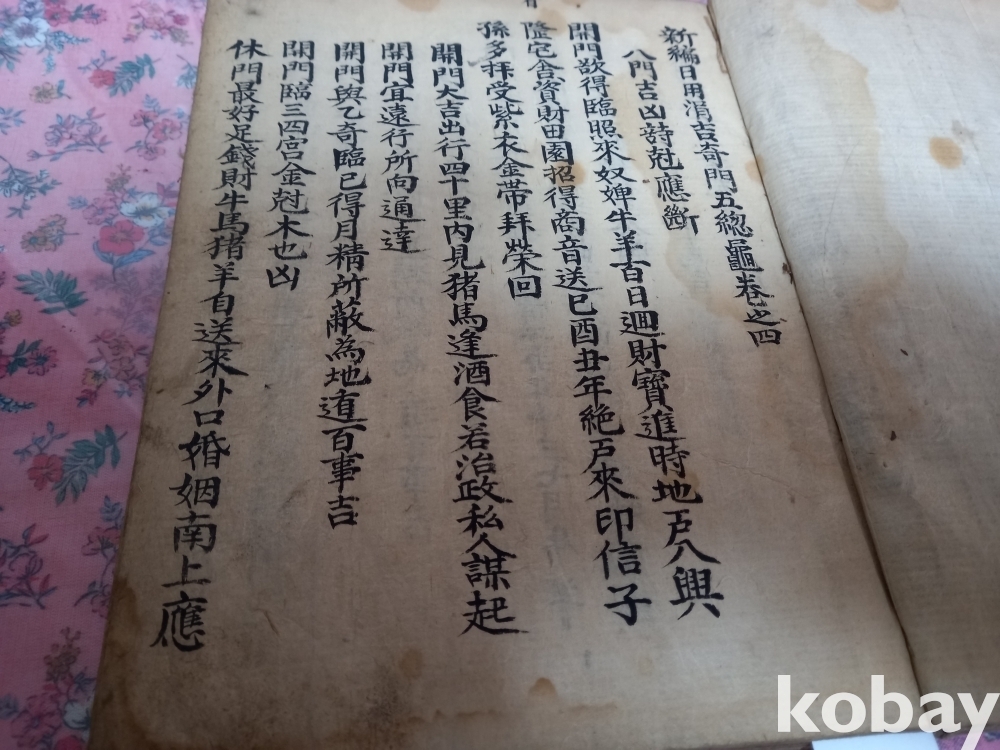 新編日用涓吉奇門五總龜卷之四
八門吉凶詩尅應斷
開門欲得臨照來奴婢牛羊百日迴財寶進時地戶八興
隆宅舍資財田園招得商音送巳酉丑年絶戶來印信子
孫多拜受紫衣金帶拜榮回
開門大吉出行四十里內見猪馬逢酒食若治政私人謀起
開門宜遠行所向通達
開門與乙奇臨已得月精所蔽為地遁百事吉
開門臨三四宮金尅木也凶
休門最好足錢財牛馬猪羊自送來外口婚姻南上應
kobay